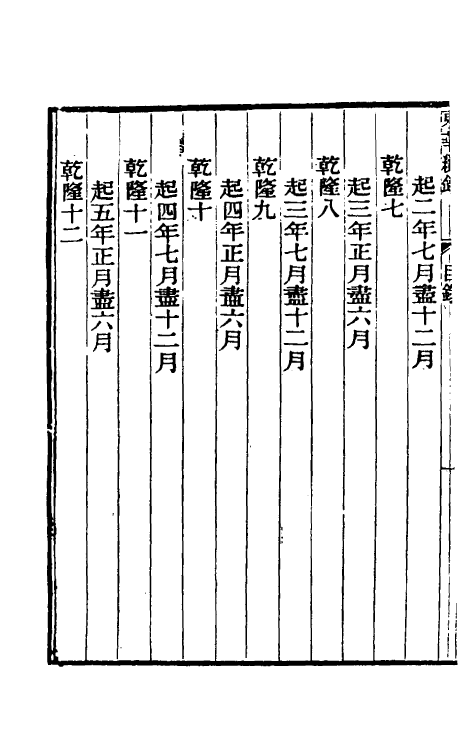 東華續錄 目錄
起二年七月盡十二月
乾隆七
起三年正月盡六月
乾隆八
起三年七月盡十二月
乾隆九
起四年正月盡六月
乾隆十
起四年七月盡十二月
乾隆十一
起五年正月盡六月
乾隆十二